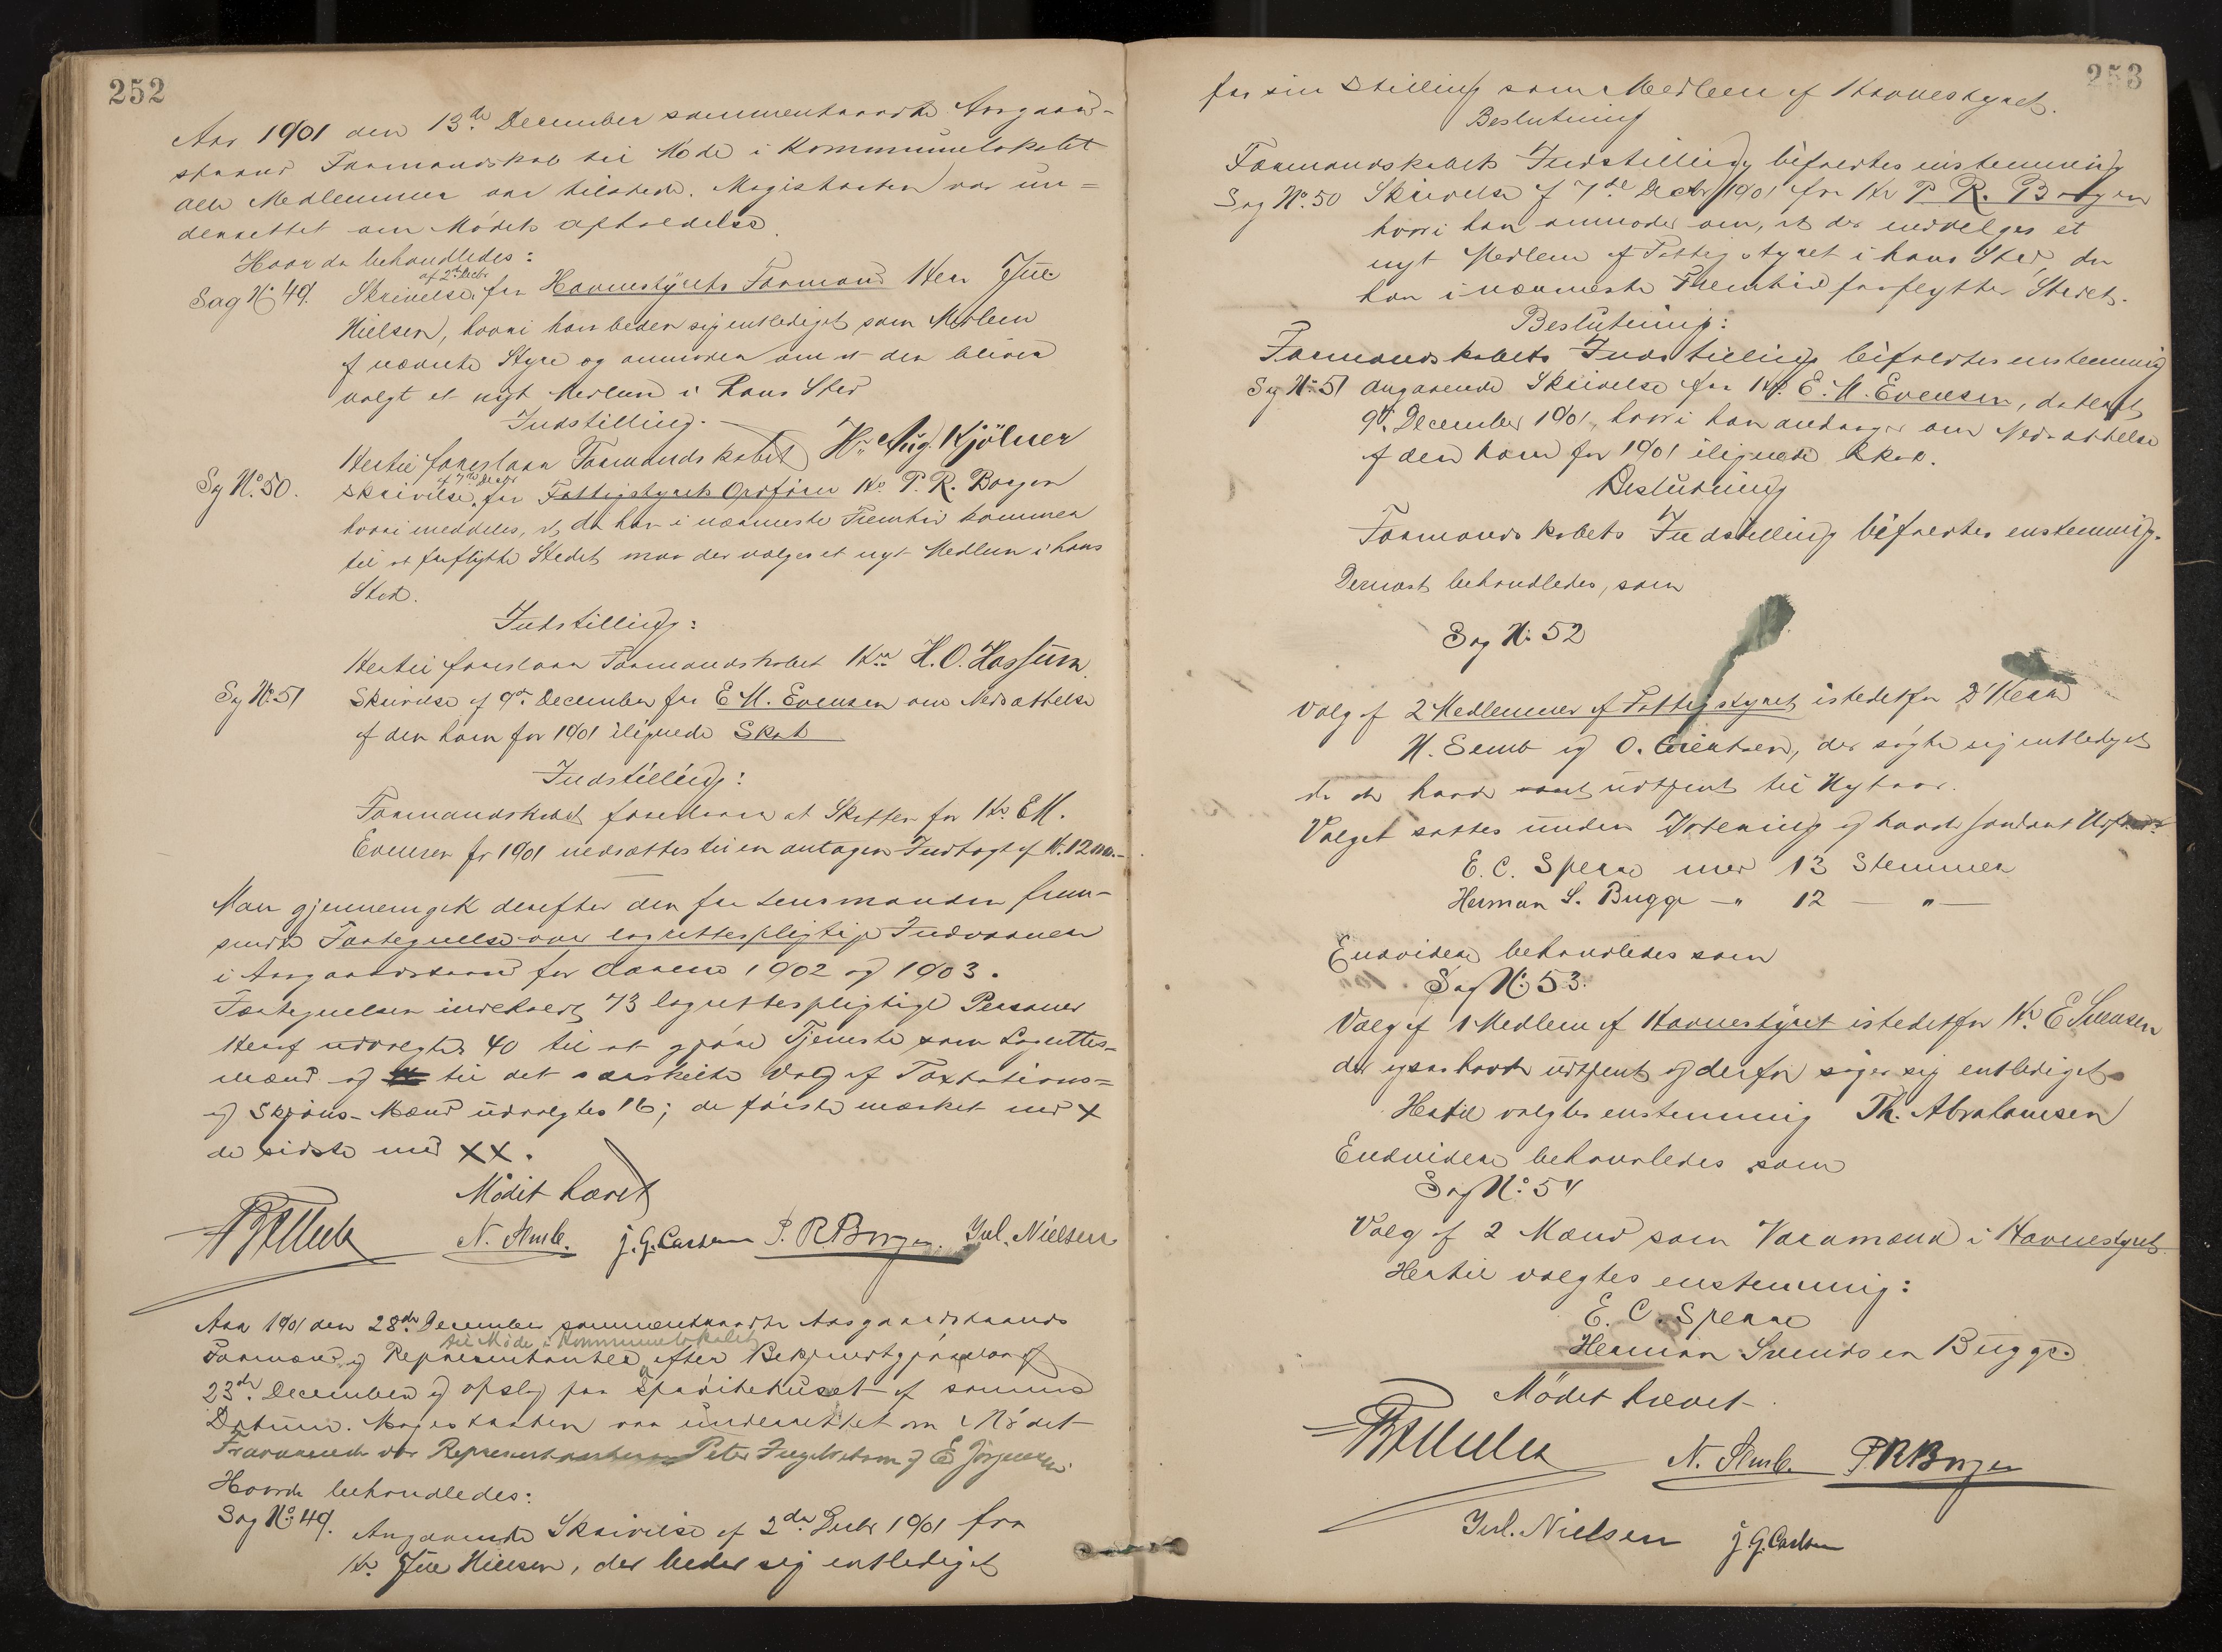 252
Aar 1901 den 13de December sammentraadte Aasgaard-
strands Formandskab til Møde i Kommunelokalet
alle Medlemmer var tilstede. Magistraten var un=
derrettet om Mødets afholdelse.
Hvor da behandledes:
af 2den Decbr
Sag No 49. Skrivelse fra Havnestyrets Formand Herr Jul.
Nielsen, hvori han beder sig entlediget som Medlem
af nævnte Styre og anmoder om at der bliver
valgt et nyt Medlem i hans Sted
Indstilling.
Hertil foreslaar Formandskabet Hr. Aug. Kjölner
af 7de Decbr
Sag No. 50. Skrivelse fra Fattigstyrets Ordfører Hr. P. R. Borgen
hvori meddeles, at da han i nærmeste Fremtid kommer
til at fraflytte Stedet maa der vælges et nyt Medlem i hans
Sted.
Indstilling:
Hertil foreslaar Formandskabet Hrr H. O. Hassum.
Sag No. 51 Skrivelse af 9de December fra E. M. Evensen om Nedsættelse
af den ham for 1901 ilignede Skat
Indstilling:
Formandskabet foreslaar at Skatten for Hr. E. M.
Evensen for 1901 nedsættes til en antagen Indtægt af Kr.
Man gjennemgik derefter den fra Lensmanden frem-
sendte Fortegnelse over lagrettespligtige Indvaanere
i Aasgaardstrand for Aarene 1902 og 1903.
Fortegnelsen indeholdt 73 lagrettespligtige Personer
Heraf udvalgtes 40 til at gjøre Tjeneste som Lagrettes-
mænd og til det særskilte Valg af Taxtations=
og Skjøns-Mænd udvalgtes 16; de første mærket med x
de sidste med xx.
Mødet hævet
N. Semb. J. G. Carlsen P. R. Borgen. Jul. Nielsen
Aar 1901 den 28de December sammentraadte Aasgaardstrands
til Møde i Kommunelokalet
Formænd og Repræsentanter efter Bekjendtgjørelse af
23de December og opslag paa Sprøitehuset af samme
Datum. Magistraten var underrettet om Mødet
Fraværende var Repræsentanterne Peter Ingebretsen og E. Jørgensen.
Hvorda behandledes:
Sag No. 49. Angaaende Skrivelse af 2den Decbr 1901 fra
Hr. Jul Nielsen, der beder sig entlediget
253
fra sin Stilling som Medlem af Havnestyret.
Beslutning
Formandskabets Indstilling bifaldtes enstemmig
Sag No. 50 Skrivelse af 7de Decbr 1901 fra Hr P. R. Borgen
hvori han anmoder om, at der udvælges et
nyt Medlem af Fattigstyret i hans Sted, da
han i nærmeste Fremtid fraflytter Stedet.
Beslutning:
Formandskabets Indstilling bifaldtes enstemmig
Sag No. 51 Angaaende Skrivelse fra Hr. E. M. Evensen, dateret
9de December 1901, hvori han andrager om Nedsættelse
af den ham for 1901 ilignede Skat.
Beslutning
Formandskabets Indstilling bifaldtes enstemmig.
Dernæst behandledes, som
Sag No. 52
Valg af 2 Medlemmer af Fattigstyret istedetfor D'Herr
N. Semb og O. der søgte sig entlediget
da de havde udtjent til Nytaar.
Valget sattes under Votering og havde saadant Udfald:
E. C. Sperre med 13 Stemmer
Herman S. Bugge – " 12 — " —
Endvidere behandledes som
Sag No. 53.
Valg af 1 Medlem af Havnestyret istedetfor Hr. E Svensen
der ogsaa havde udtjent og derfor søger sig entlediget
Hertil valgtes enstemmig Th. Abrahamsen
Endvidere behandledes som
Sag No. 54
Valg af 2 Mænd som Varamænd i Havnestyret
Hertil valgtes enstemmig:
E. C. Sperre
Herman Svendsen Bugge.
Mødet hævet
N. Semb. P. R. Borgen
Jul. Nielsen J. G. Carlsen